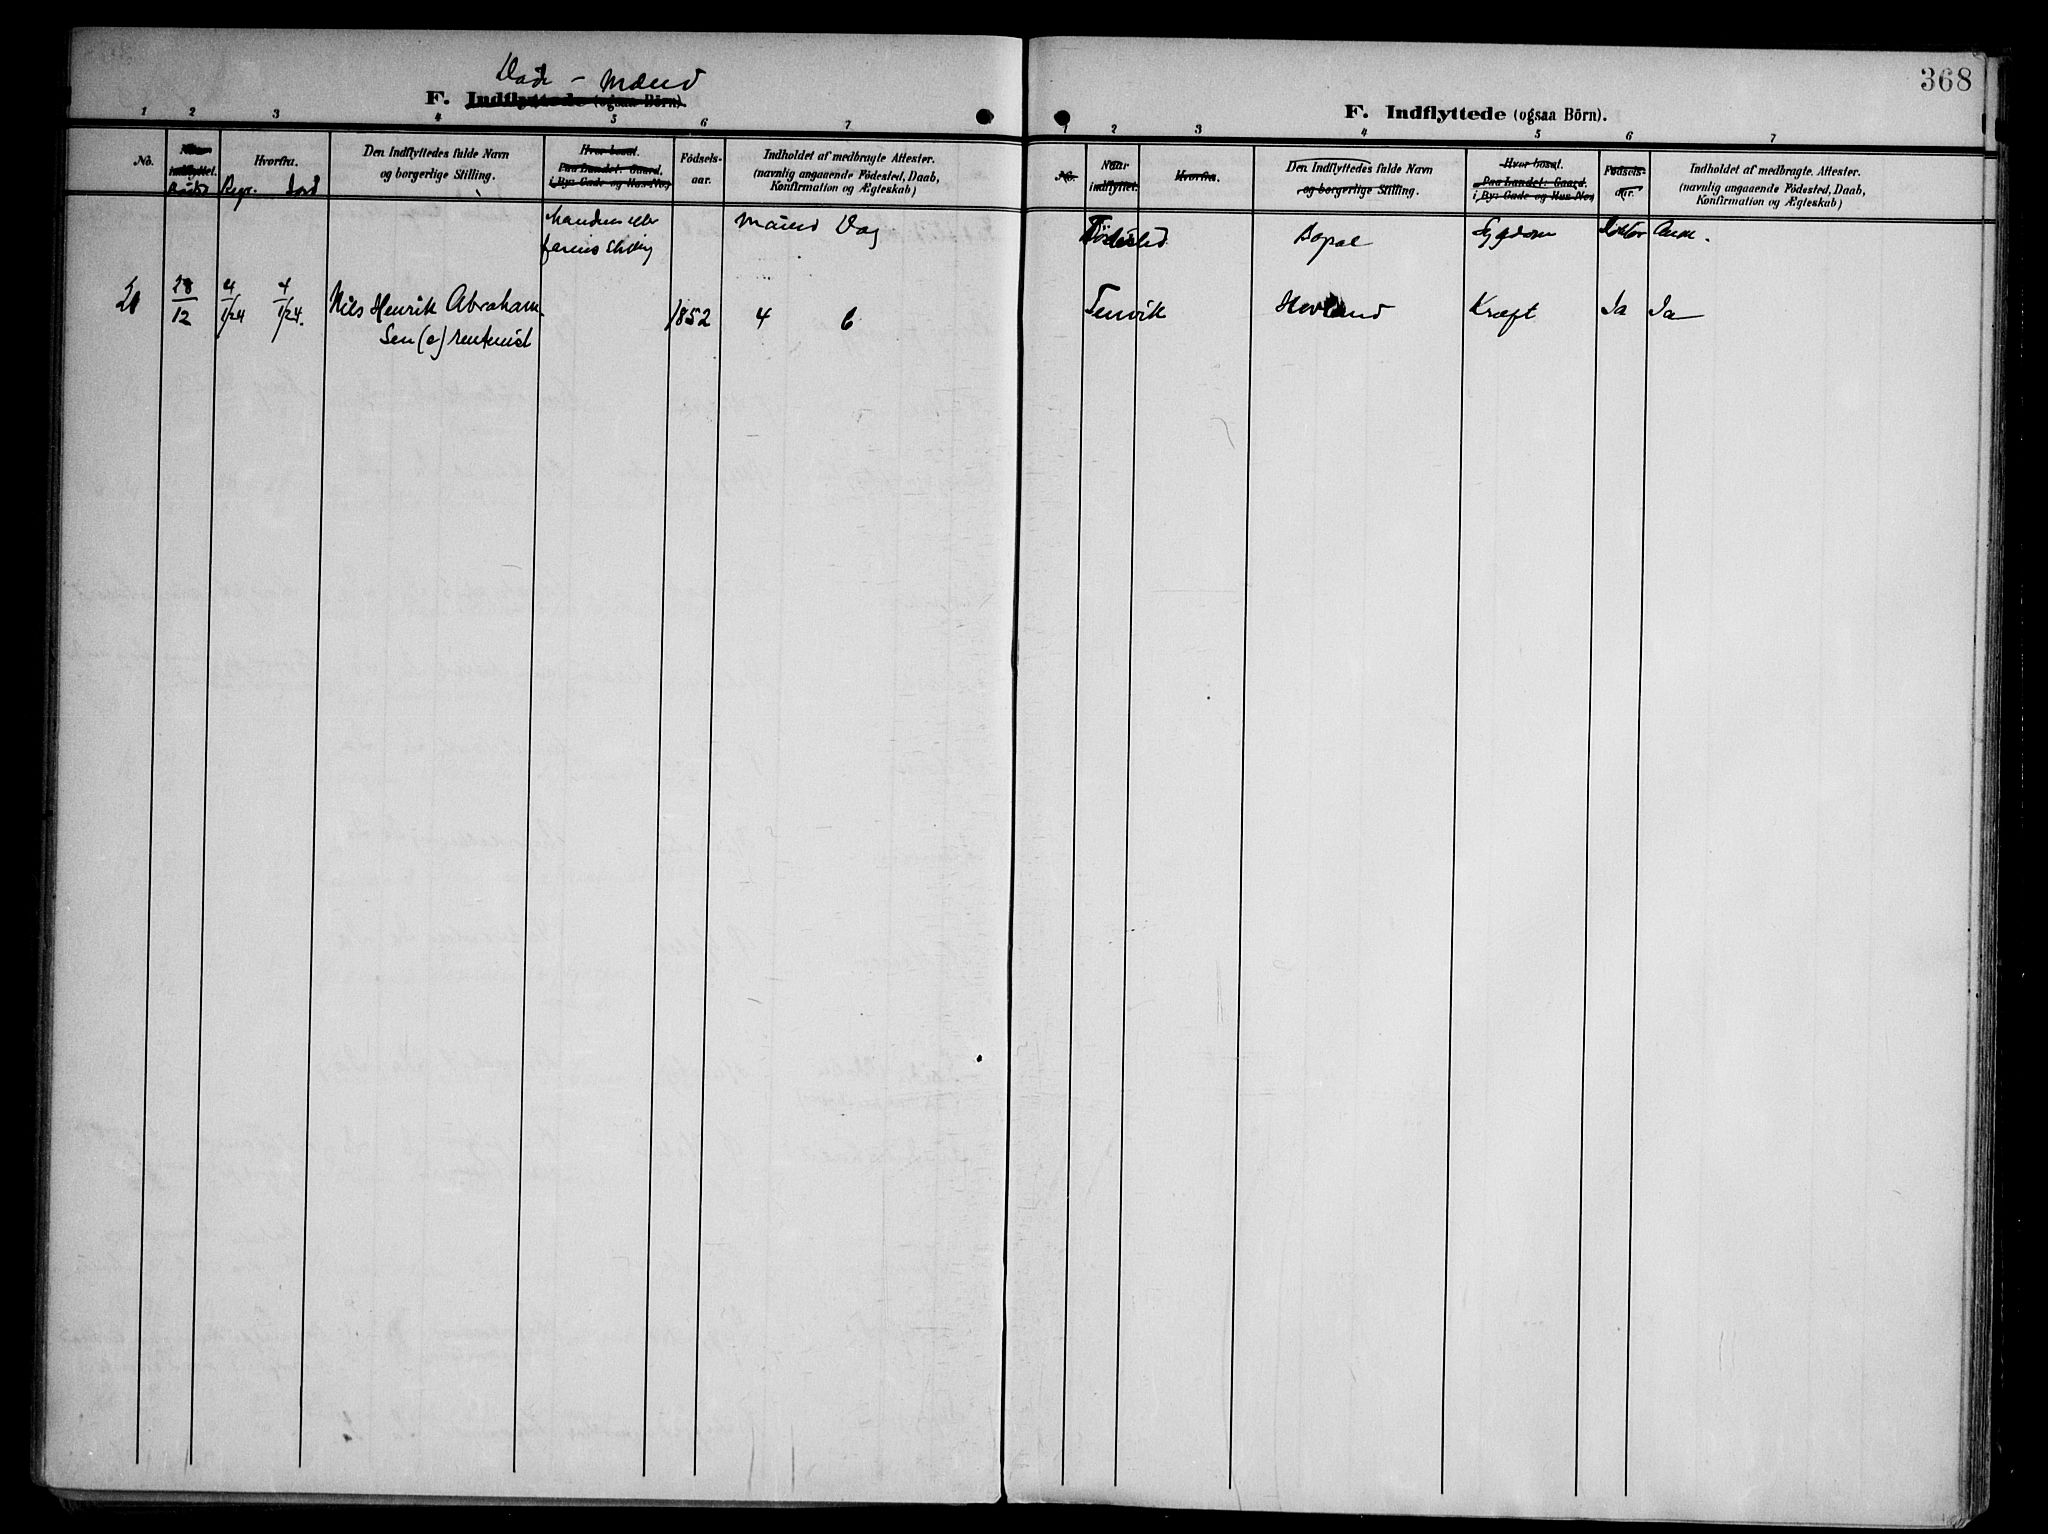 368
Døde - Mænd
F. Indflyttede (ogsaa Børn).
1 2 3 4 5 6 7
No.
Naar indflyttet.
Hvorfra.
Den Indflyttedes fulde Navn
og borgerlige Stilling.
Hvor bosat.
Paa Landet: Gaard.
i By: Gade og Hus-No.
Fødsels-
aar.
Indholdet af medbragte Attester.
(navnlig angaaende Fødested, Daab,
Konfirmation og Ægteskab)
Døds Begr. Jord
Mandens eller
farens Stilling
Maaned Dag
21 28/12 4/1/24 4/1/24. Nils Henrik Abraham-
sen (e) rentenist
1852 4 6
F. Indflyttede (ogsaa Børn).
1 2 3 4 5 6 7
No.
Naar
indflyttet.
Hvorfra.
Den Indflyttedes fulde Navn
og borgerlige Stilling.
Hvor bosat.
Paa Landet: Gaard.
i By: Gade og Hus-No.
Fødsels-
aar.
Indholdet af medbragte Attester.
(navnlig angaaende Fødested, Daab,
Konfirmation og Ægteskab)
Fødested Bopæl Sygdom Doktor Anm.
Tenvik Hovland Kræft Ja Ja